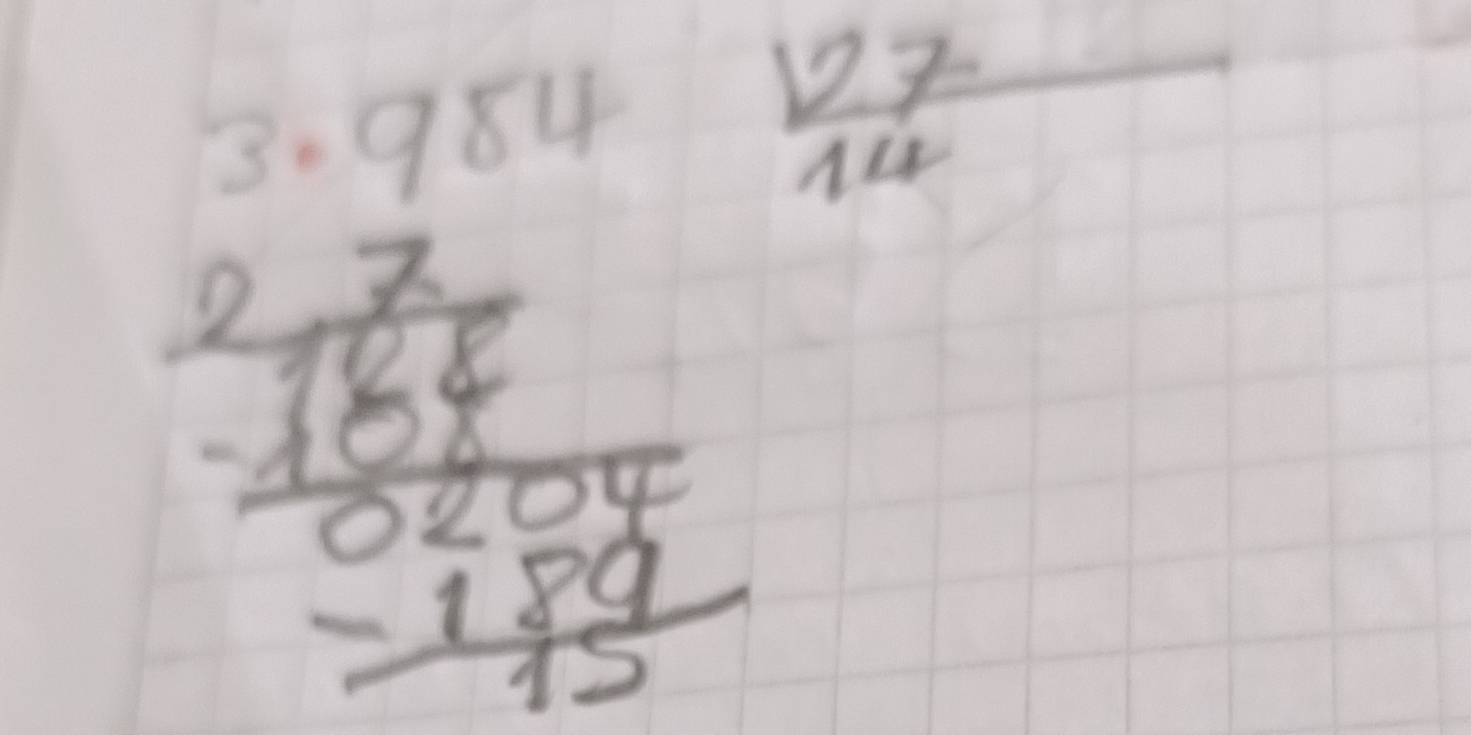 3.984 27
14
2 7
128
-108
0204
-189
15